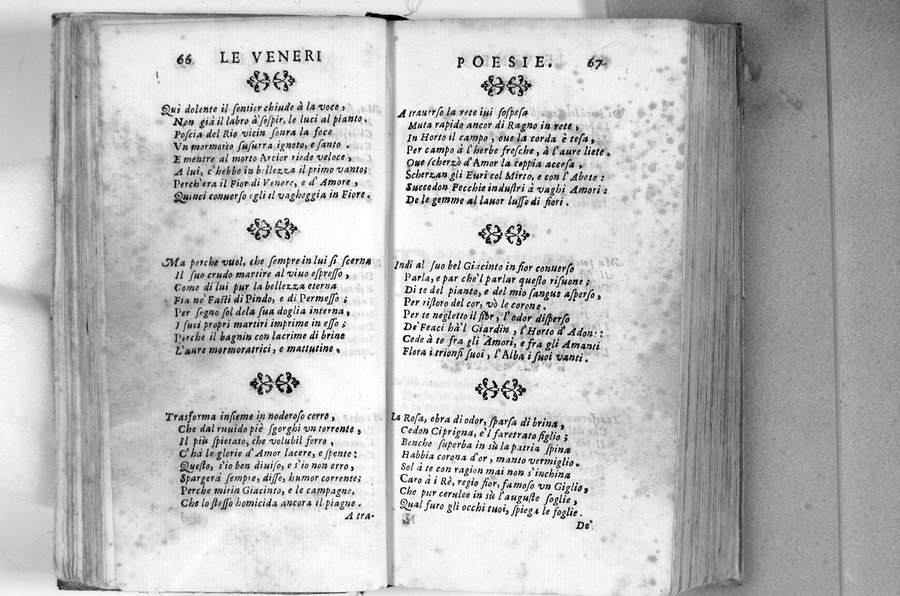 66 LE VENERI
Qui dolente il ſentier chiude à la voce,
Non già il labro à ſoſpir, le luci al pianto.
Poſcia del Rio vicin ſoura la foce
Vn mormorio ſuſurra ignoto, e ſanto.
E mentre al morto Arcier riede veloce,
A lui, c'hebbe in bellezza il primo vanto;
Perch'era il Fior di Venere, e d'Amore,
Quinci conuerſo egli il vagheggia in Fiore.
Ma perche vuol, che ſempre in lui ſi ſcerna
Il ſuo crudo martire al viuo eſpreſſo,
Come di lui pur la bellezza eterna
Fia ne' Faſti di Pindo, e di Permeſſo;
Per ſegno ſol dela ſua doglia interna,
I ſuoi propri martiri imprime in eſſo;
Perche il bagnin con lacrime di brine
L'aure mormoratrici, e mattutine.
Trasforma inſieme in noderoſo cerro,
Che dal ruuido piè ſgorghi vn torrente,
Il più ſpietato, che volubil ferro,
C'hà le glorie d'Amor lacere, e spente:
Queſto, s'io ben diuiſo, e s'io non erro,
Spargerà ſempre, diſſe, humor corrente;
Perche mirin Giacinto, e le campagne,
Che lo ſteſſo homicida ancora il piagne.
A tra-
POESIE. 67
A trauerſo la rete iui ſoſpeſa
Muta rapido ancor di Ragno in rete,
In Horto il campo, oue la corda è teſa,
Per campo à l'herbe freſche, à l'aure liete.
Oue ſcherzò d'Amor la coppia acceſa
Scherzan gli Euri col Mirto, e con l'Abete:
Succedon Pecchie induſtri à vaghi Amori:
De le gemme al lauor luſſo di fiori.
Indi al ſuo bel Giacinto in fior conuerſo
Parla, e par che'l parlar queſto riſuone;
Di te del pianto, e del mio ſangue aſperſo,
Per riſtoro del cor, vò le corone.
Per te negletto il fior, l'odor diſperſo
De' Feaci hà'l Giardin, l'Horto d'Adon:
Cede à te fra gli Amori, e fra gli Amanti
Flora i trionfi ſuoi, l'Alba i ſuoi vanti.
La Roſa, ebra di odor, ſparſa di brina,
Cedon Ciprigna, e'l faretrato figlio;
Benche ſuperba in sù la patria ſpina
Habbia corona d'or, manto vermiglio.
Sol à te con ragion mai non s'inchina
Caro à i Rè, regio fior, famoſo vn Giglio,
Che pur cerulee in sù l'auguſte ſoglie,
Qual furo gli occhi tuoi, ſpiega le foglie.
De'